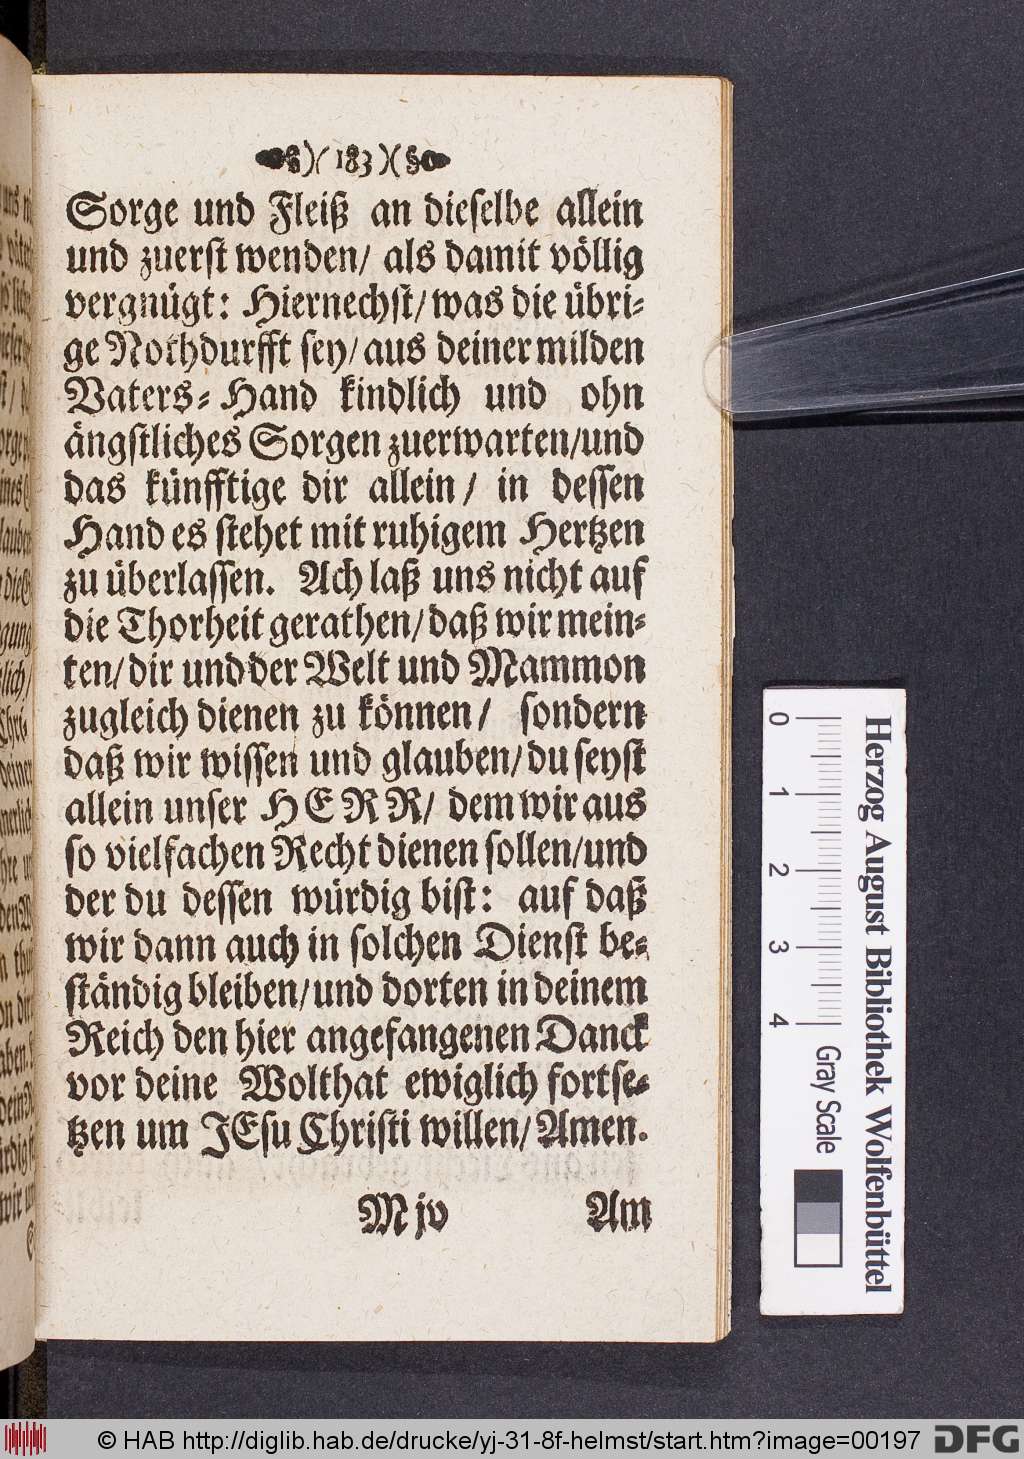 )( 183 )(
Sorge und Fleiß an dieselbe allein
und zuerst wenden/ als damit völlig
vergnügt: Hiernechst/ was die übri-
ge Nothdurfft sey/ aus deiner milden
Vaters-Hand kindlich und ohn
ängstliches Sorgen zuerwarten/ und
das künfftige dir allein/ in dessen
Hand es stehet mit ruhigem Hertzen
zu überlassen. Ach laß uns nicht auf
die Thorheit gerathen/ daß wir mein-
ten/ dir und der Welt und Mammon
zugleich dienen zu können/ sondern
daß wir wissen und glauben/ du seyst
allein unser HERR/ dem wir aus
so vielfachen Recht dienen sollen/ und
der du dessen würdig bist: auf daß
wir dann auch in solchen Dienst be-
ständig bleiben/ und dorten in deinem
Reich den hier angefangenen Danck
vor deine Wolthat ewiglich fortse-
tzen um JEsu Christi willen/ Amen.
M jv Am
0 1 2 3 4 Gray Scale
Herzog August Bibliothek Wolfenbüttel
© HAB http://diglib.hab.de/drucke/yj-31-8f-helmst/start.htm?image=00197 DFG